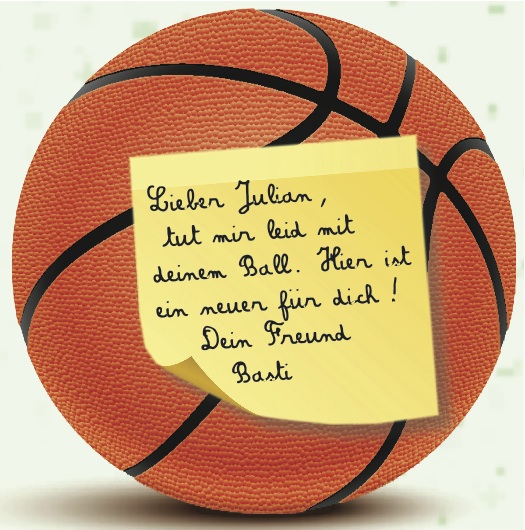 Lieber Julian,
tut mir leid mit
deinem Ball. Hier ist
ein neuer für dich!
Dein Freund
Basti